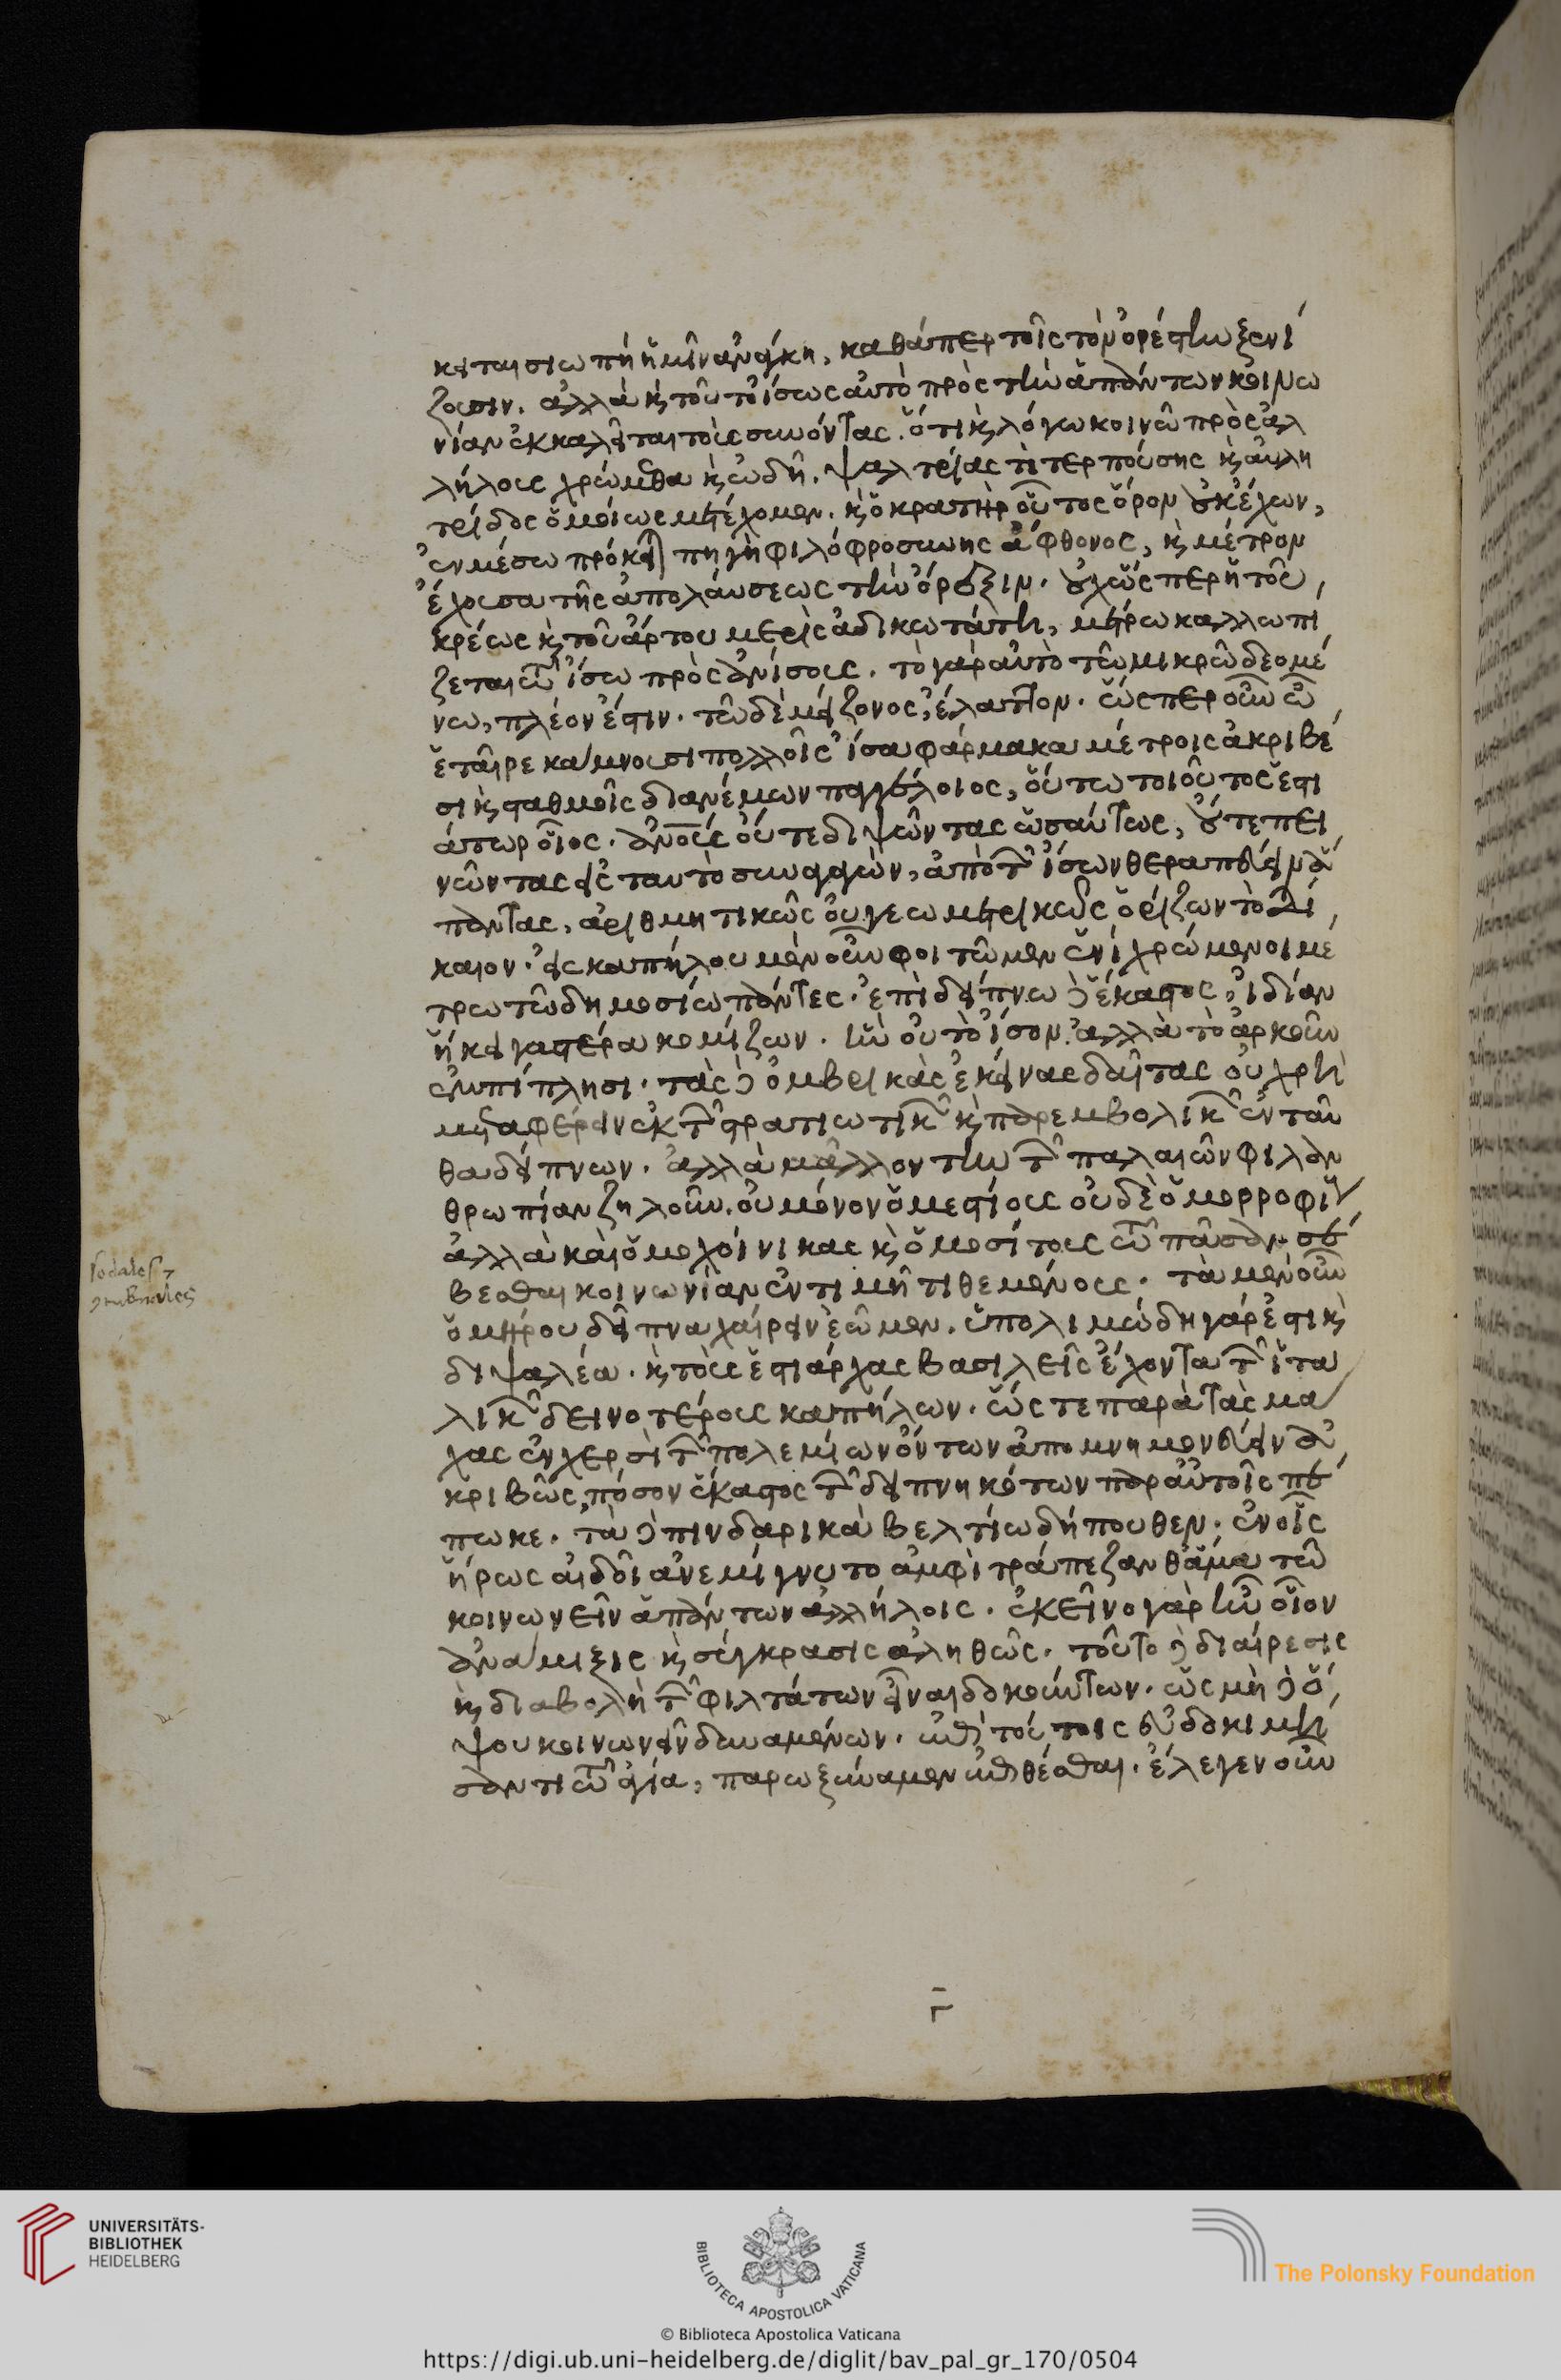 κειται σιωπὴ ἡμῖν ἀνάγκη, καθάπερ τοῖς τὸν ὀρέστην ξενί
ζουσιν. ἀλλὰ κ̀ τοῦτο ἴσως αὐτὸ πρὸς τὴν ἁπάντων κοινω
νίαν ἐκκαλεῖται τοὺς συνόντας. ὅτι κ̀ λόγω κοινῶ πρὸς ἀλ
λήλους χρώμεθα κ̀ ὠδῆ. ψαλτρίας τὲ τερπούσης κ̀ αὐλη
τρίδος ὁμοίως μετέχομεν. κ̀ ὁ κρατὴρ οὗτος ὅρον οὐκ ἔχων,
ἐν μέσω πρόκειται πηγὴ φιλοφροσύνης ἄφθονος, κ̀ μέτρον
ἔχουσα τῆς ἀπολαύσεως τὴν ὄρεξιν. οὐχ ὥσπερ ἡ τοῦ
κρέως κ̀ τοῦ ἄρτου μερὶς ἀδικωτάτη, μέτρω καλλωπί
ζεται τῶ ἴσω πρὸς ἀνίσους. τὸ γὰρ αὐτὸ τῶ μικρῶ δεομέ
νω, πλέον ἐστιν. τῶ δὲ μείζονος, ἔλαττον. ὥσπερ οὖν ὦ
ἑταῖρε κάμνουσι πολλοῖς ἴσα φάρμακα μέτροις ἀκριβέ
σι κ̀ σταθμοῖς διανέμων παγγέλοιος, οὕτω τοιοῦτος ἑστι
άτωρ οἷος. ἀνους οὔτε διψῶντας ὡσαύτως, οὔτε πει
νῶντας εἰς ταυτὸ συναγαγὼν, ἀπὸ τῶν ἴσων θεραπεύειν ἅ
παντας, ἀριθμητικῶς οὐ γεωμετρικῶς ὁρίζων τὸ δί
καιον. εἰς καπήλου μὲν οὖν φοιτῶμεν ἑνὶ χρώμενοι μέ
τρω τῶ δημοσίω πάντες. ἐπὶ δεῖπνω δὲ ἕκαστος, ἰδίαν
ἥκει γαστέρα κομίζων. ἣν οὐ τὸ ἴσον ἀλλὰ τὸ ἀρκοῦν
ἐμπίπλησι. τὰς δὲ ὀμβρικὰς ἐκείνας δαῖτας οὐ χρὴ
μεταφέρειν ἐκ τῶν στρατιωτικῶν κ̀ παρεμβολικῶν ἐνταῦ
θα δείπνων. ἀλλὰ μᾶλλον τὴν τῶν παλαιῶν φιλαν
θρωπίαν ζηλοῦν. οὐ μόνον ὁμεστίους οὐδὲ ὁμορροφίους
ἀλλὰ καὶ ὁμοχοίνικας κ̀ ὁμοσίτους τῶ πᾶσαν σέ
βεσθαι κοινωνίαν ἐν τιμῆ τιθεμένους. τὰ μὲν οὖν
ὁμήρου δεῖπνα χαίρειν ἐῶμεν. ὑπολιμώδη γάρ ἐστι κ̀
διψαλέα. κ̀ τοὺς ἑστιάρχας βασιλεῖς ἔχοντα τῶν ἰτα
λικῶν δεινοτέρους καπήλων. ὥστε παρὰ τὰς μά
χας ἐν χερσὶ τῶν πολεμίων ὄντων ἀπομνημονεύειν ἀ
κριβῶς, πόσον ἕκαστος τῶν δειπνηκότων παρ αὐτοῖς πέ
πωκε. τὰ δὲ πινδαρικὰ βελτίω δήπουθεν. ἐν οἷς
ἥρωες αἰδοῖ ἀνεμίγνυτο ἀμφὶ τράπεζαν θἀμὰ τῶ
κοινωνεῖν ἁπάντων ἀλλήλοις. ἐκεῖνο γὰρ ἦν οἷον
ἀνάμιξις κ̀ σύγκρασις ἀληθῶς. τοῦτο δὲ διαίρεσις
κ̀ διαβολὴ τῶν φιλτάτων εἶναι δοκούντων. ὡς μὴ δὲ ὄ
ψου κοινωνεῖν δυναμένων. ἐπὶ τούτοις εὐδοκιμή
σαντι τῶ ἁγία, παρωξύναμεν ἐπιθέσθαι. ἔλεγεν οὖν
sodales
Γ
UNIVERSITÄTS-
BIBLIOTHEK
HEIDELBERG
BIBLIOTECA APOSTOLICA VATICANA
The Polonsky Foundation
© Biblioteca Apostolica Vaticana
https://digi.ub.uni-heidelberg.de/diglit/bav_pal_gr_170/0504